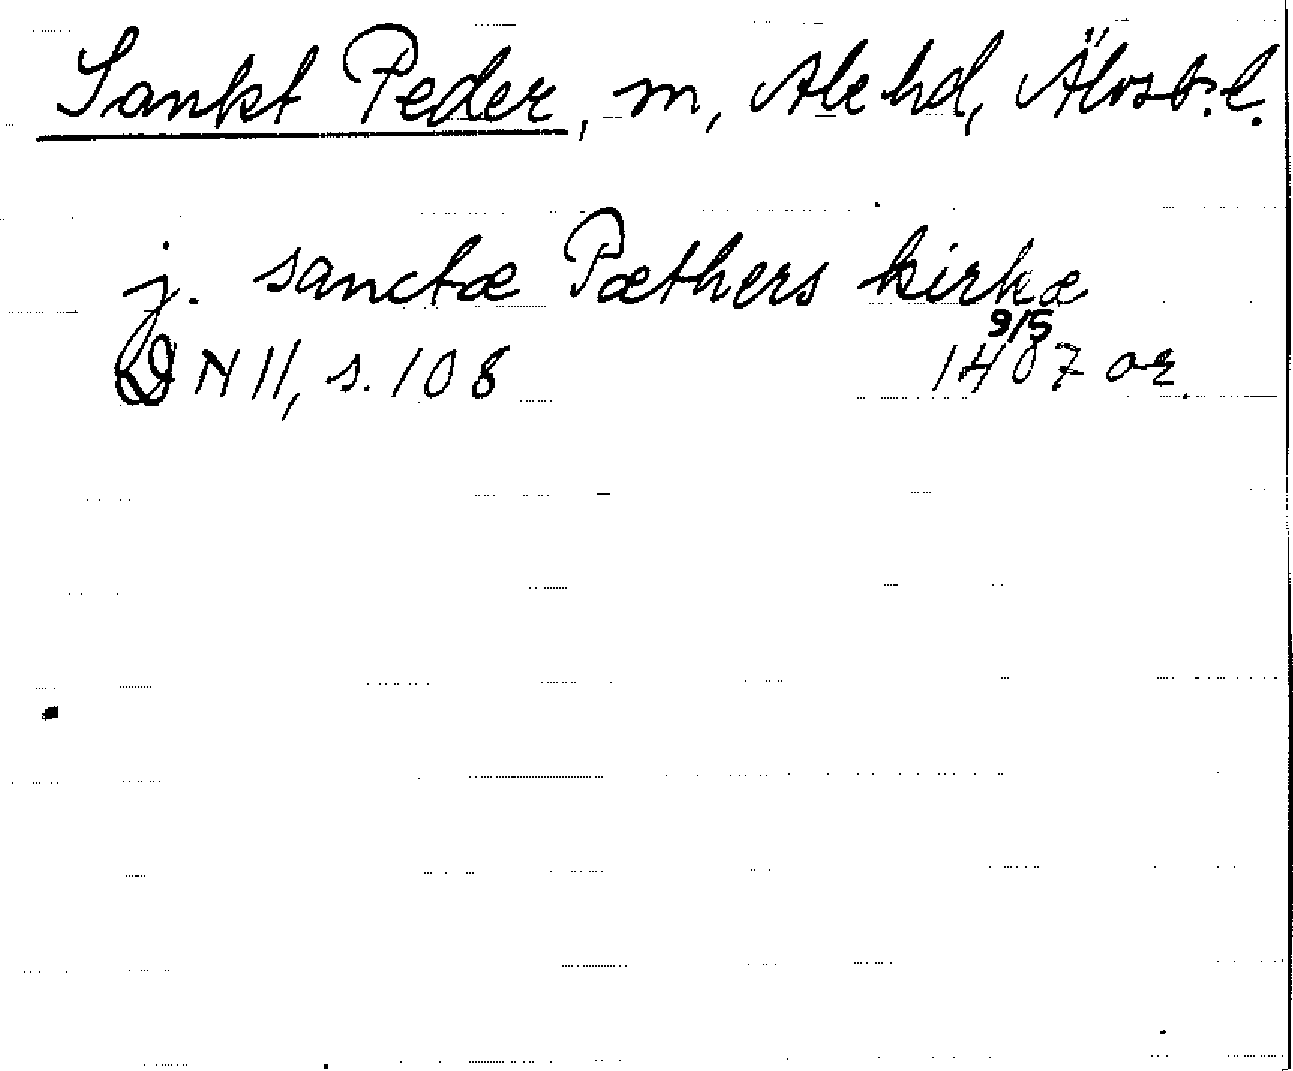 Sankt Peder, m, Ale hd, Älvsb. l.
j. sanctæ Pæthers kirkæ
9/5
DN 11, s. 108 1407 or.